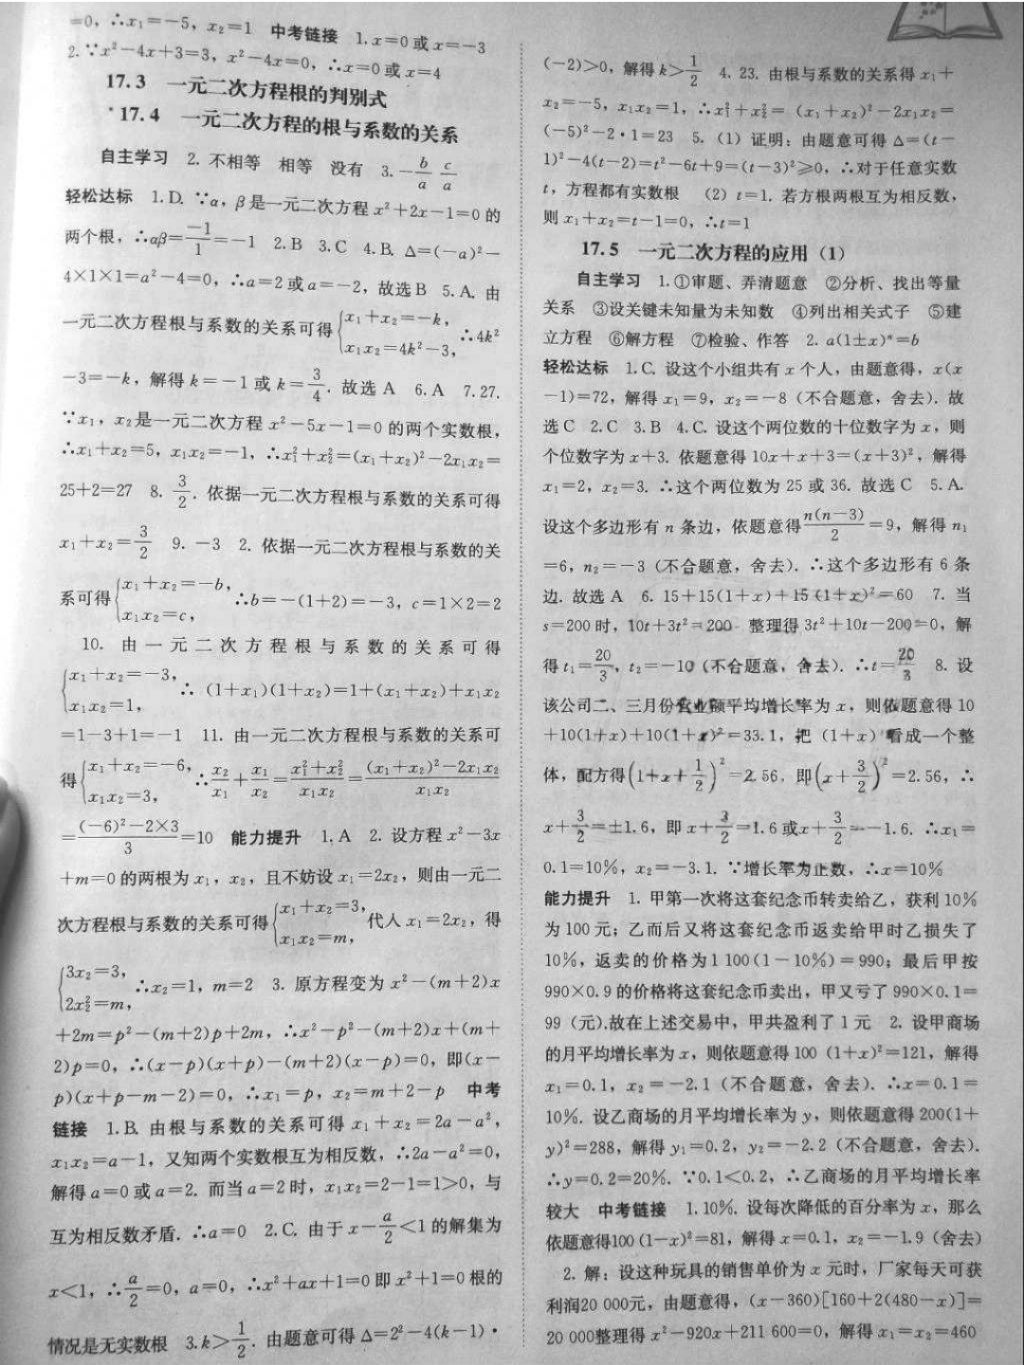 =0，∴x₁=-5，x₂=1 中考链接 1. x=0或x=-3
2. ∵x²-4x+3=3，x²-4x=0，∴x=0或x=4
17.3 一元二次方程根的判别式
17.4 一元二次方程的根与系数的关系
自主学习 2. 不相等 相等 没有 3. -b/a c/a
轻松达标 1. D. ∵α，β是一元二次方程x²+2x-1=0的
两个根，∴αβ=-1/1=-1 2. B 3. C 4. B. △=(-a)²-
4×1×1=a²-4=0，∴a=2或a=-2，故选B 5. A. 由
一元二次方程根与系数的关系可得{x₁+x₂=-k，x₁x₂=4k²-3，∴4k²
-3=-k，解得k=-1或k=3/4. 故选A 6. A 7. 27.
∵x₁，x₂是一元二次方程x²-5x-1=0的两个实数根，
∴x₁+x₂=5，x₁x₂=-1，∴x₁²+x₂²=(x₁+x₂)²-2x₁x₂=
25+2=27 8. 3/2. 依据一元二次方程根与系数的关系可得
x₁+x₂=3/2 9. -3 2. 依据一元二次方程根与系数的关
系可得{x₁+x₂=-b，x₁x₂=c，∴b=-(1+2)=-3，c=1×2=2
10. 由一元二次方程根与系数的关系可得
{x₁+x₂=-3，x₁x₂=1，∴(1+x₁)(1+x₂)=1+(x₁+x₂)+x₁x₂
=1-3+1=-1 11. 由一元二次方程根与系数的关系可
得{x₁+x₂=-6，x₁x₂=3，∴x₂/x₁+x₁/x₂=(x₁²+x₂²)/(x₁x₂)=((x₁+x₂)²-2x₁x₂)/(x₁x₂)
=((-6)²-2×3)/3=10 能力提升 1. A 2. 设方程x²-3x
+m=0的两根为x₁，x₂，且不妨设x₁=2x₂，则由一元二
次方程根与系数的关系可得{x₁+x₂=3，x₁x₂=m，代人x₁=2x₂，得
{3x₂=3，2x₂²=m，∴x₂=1，m=2 3. 原方程变为x²-(m+2)x
+2m=p²-(m+2)p+2m，∴x²-p²-(m+2)x+(m+
2)p=0，∴(x-p)(x+p)-(m+2)(x-p)=0，即(x-
p)(x+p-m-2)=0，∴x₁=p，x₂=m+2-p 中考
链接 1. B. 由根与系数的关系可得x₁+x₂=2a-a²，
x₁x₂=a-1，又知两个实数根互为相反数，∴2a-a²=0，
解得a=0或a=2. 而当a=2时，x₁x₂=2-1=1>0，与
互为相反数矛盾. ∴a=0 2. C. 由于x-a/2<1的解集为
x<1，∴a/2=0，a=0，∴x²+ax+1=0即x²+1=0根的
情况是无实数根 3. k>1/2. 由题意可得△=2²-4(k-1)·
(-2)>0，解得k>1/2 4. 23. 由根与系数的关系得x₁+
x₂=-5，x₁x₂=1，∴x₁²+x₂²=(x₁+x₂)²-2x₁x₂=
(-5)²-2·1=23 5. (1) 证明：由题意可得△=(t-
1)²-4(t-2)=t²-6t+9=(t-3)²≥0，∴对于任意实数
t，方程都有实数根 (2) t=1. 若方根两根互为相反数，
则x₁+x₂=t-1=0，∴t=1
17.5 一元二次方程的应用（1）
自主学习 1. ①审题、弄清题意 ②分析、找出等量
关系 ③设关键未知量为未知数 ④列出相关式子 ⑤建
立方程 ⑥解方程 ⑦检验、作答 2. a(1±x)ⁿ=b
轻松达标 1. C. 设这个小组共有x个人，由题意得，x(x
-1)=72，解得x₁=9，x₂=-8（不合题意，舍去）. 故
选C 2. C 3. B 4. C. 设这个两位数的十位数字为x，则
个位数字为x+3. 依题意得10x+x+3=(x+3)²，解得
x₁=2，x₂=3. ∴这个两位数为25或36. 故选C 5. A.
设这个多边形有n条边，依题意得n(n-3)/2=9，解得n₁
=6，n₂=-3（不合题意，舍去）. ∴这个多边形有6条
边. 故选A 6. 15+15(1+x)+15(1+x)²=60 7. 当
s=200时，10t+3t²=200 整理得3t²+10t-200=0，解
得t₁=20/3，t₂=-10（不合题意，舍去）. ∴t=20/3 8. 设
该公司二、三月份营业额平均增长率为x，则依题意得10
+10(1+x)+10(1+x)²=33.1，把（1+x）看成一个整
体，配方得(1+x+1/2)²=2.56，即(x+3/2)²=2.56，∴
x+3/2=±1.6，即x+3/2=1.6或x+3/2=-1.6. ∴x₁=
0.1=10%，x₂=-3.1. ∵增长率为正数，∴x=10%
能力提升 1. 甲第一次将这套纪念币转卖给乙，获利10%
为100元；乙而后又将这套纪念币返卖给甲时乙损失了
10%，返卖的价格为1 100(1-10%)=990；最后甲按
990×0.9的价格将这套纪念币卖出，甲又亏了990×0.1=
99（元）.故在上述交易中，甲共盈利了1元 2. 设甲商场
的月平均增长率为x，则依题意得100（1+x)²=121，解得
x₁=0.1，x₂=-2.1（不合题意，舍去）. ∴x=0.1=
10%. 设乙商场的月平均增长率为y，则依题意得200(1+
y)²=288，解得y₁=0.2，y₂=-2.2（不合题意，舍去）.
∴y=0.2=20%. ∵0.1<0.2，∴乙商场的月平均增长率
较大 中考链接 1. 10%. 设每次降低的百分率为x，那么
依题意得100(1-x)²=81，解得x=0.1，x₂=-1.9（舍去）
2. 解：设这种玩具的销售单价为x元时，厂家每天可获
利润20 000元，由题意得，(x-360)[160+2(480-x)]=
20 000整理得x²-920x+211 600=0，解得x₁=x₂=460